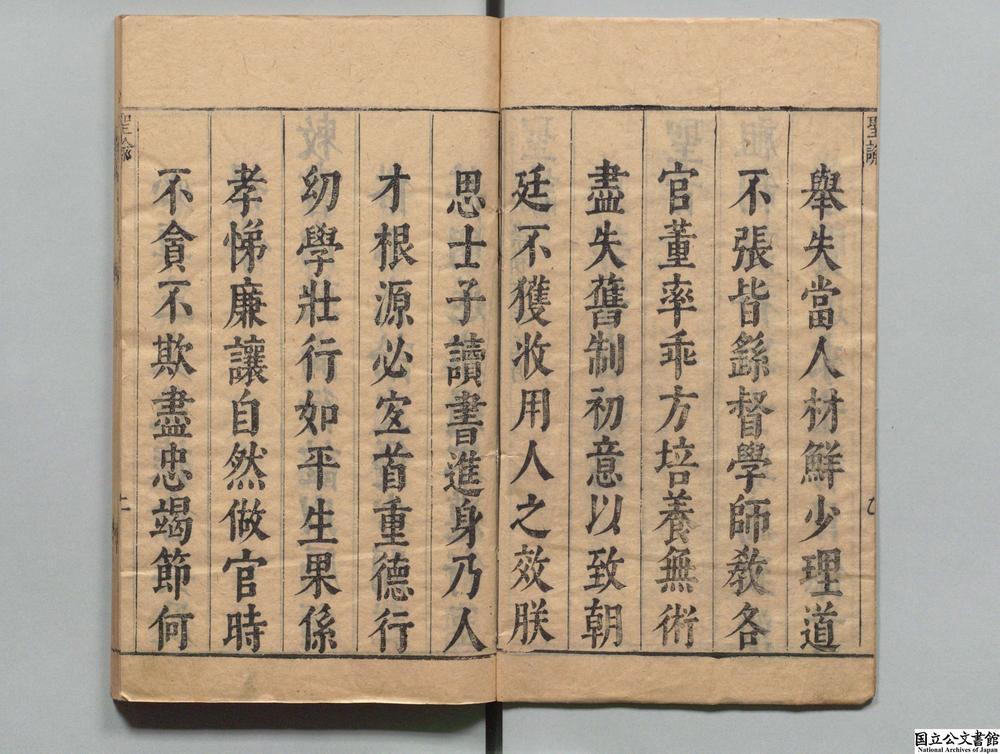 聖諭
舉失當人材鮮少理道
不張皆繇督學師教各
官董率乖方培養無術
盡失舊制初意以致朝
廷不獲收用人之效朕
思士子讀書進身乃人
才根源必宜首重德行
幼學壯行如平生果係
孝悌廉讓自然做官時
不貪不欺盡忠竭節何
聖諭
二
国立公文書館
National Archives of Japan